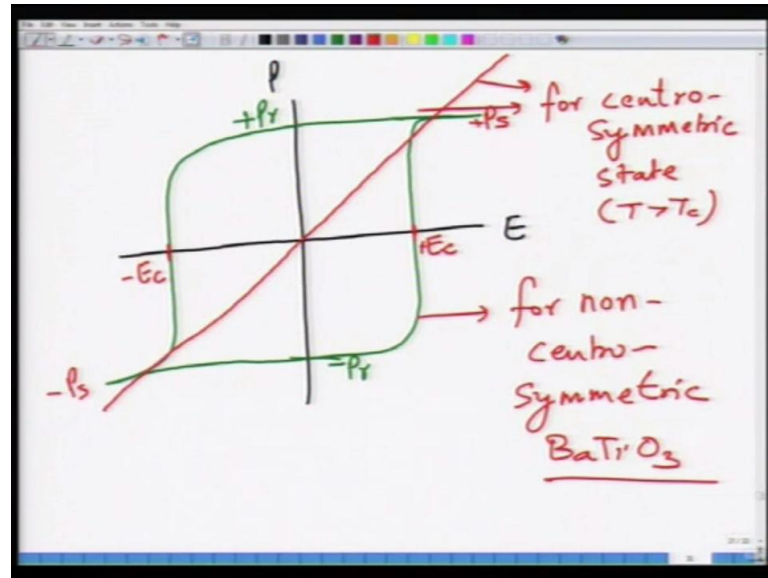 File Edit View Insert Actions Tools Help
P
+Pr
+Ps
for centro-
symmetric
state
(T>Tc)
E
-Ec
+Ec
for non-
centro-
symmetric
BaTiO3
-Pr
-Ps